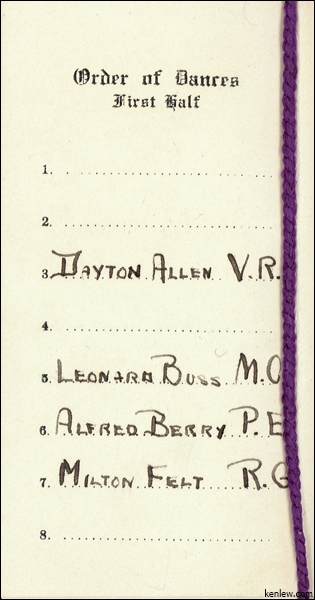 Order of Dances
First Half
1.
2.
3. DAYTON ALLEN V.R.
4.
5. LEONARD BUSS M.O
6. ALFRED BERRY P.E
7. MILTON FELT R.G
8.
kenlew.com